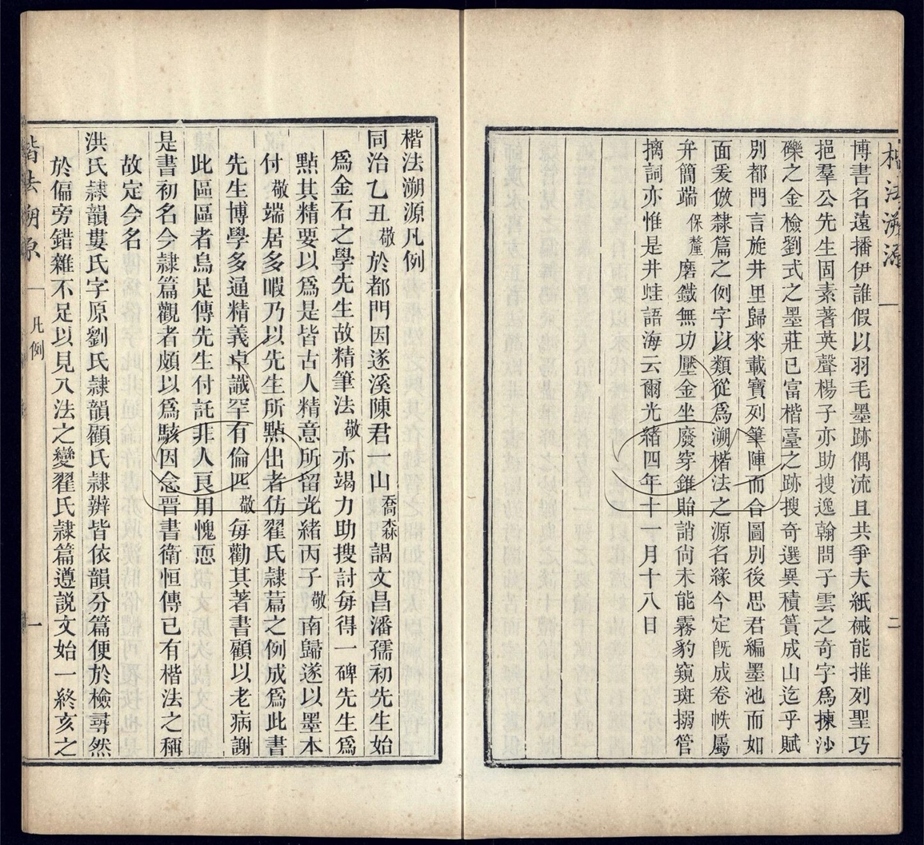 楷法溯源
二
博書名遠播伊誰假以羽毛墨跡偶流且共爭夫紙祴能推列聖巧
挹羣公先生固素著英聲楊子亦助搜逸翰問子雲之奇字爲揀沙
礫之金檢劉式之墨莊已富楷臺之跡搜奇選異積簣成山迄乎賦
別都門言旋井里歸來載寶列筆陣而合圖別後思君編墨池而如
面爰倣隸篇之例字以類從爲溯楷法之源名緣今定旣成卷帙屬
弁簡端保釐磨鐵無功壓金坐廢穿錐貽誚尚未能霧豹窺斑搦管
摛詞亦惟是井蛙語海云爾光緒四年十一月十八日
楷法溯源凡例
同治乙丑敬於都門因遂溪陳君一山喬森謁文昌潘孺初先生始
爲金石之學先生故精筆法敬亦竭力助搜討每得一碑先生爲
點其精要以爲是皆古人精意所留光緒丙子敬南歸遂以墨本
付敬端居多暇乃以先生所點出者仿翟氏隸篇之例成爲此書
先生博學多通精義卓識罕有倫匹敬每勸其著書顧以老病謝
此區區者烏足傳先生付託非人良用愧恧
是書初名今隸篇觀者頗以爲駭因念晉書衛恒傳已有楷法之稱
故定今名
洪氏隸韻婁氏字原劉氏隸韻顧氏隸辨皆依韻分篇便於檢尋然
於偏旁錯雜不足以見八法之變翟氏隸篇遵説文始一終亥之
楷法溯源
凡例
一